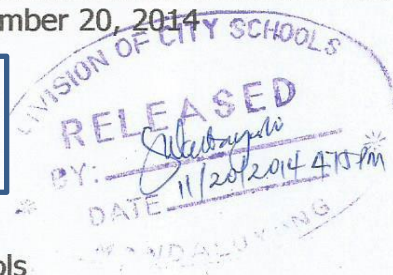 mber 20, 2014
DIVISION OF CITY SCHOOLS
RELEASED
BY:
DATE 11/20/2014 4:15 PM
MANDALUYONG
ols